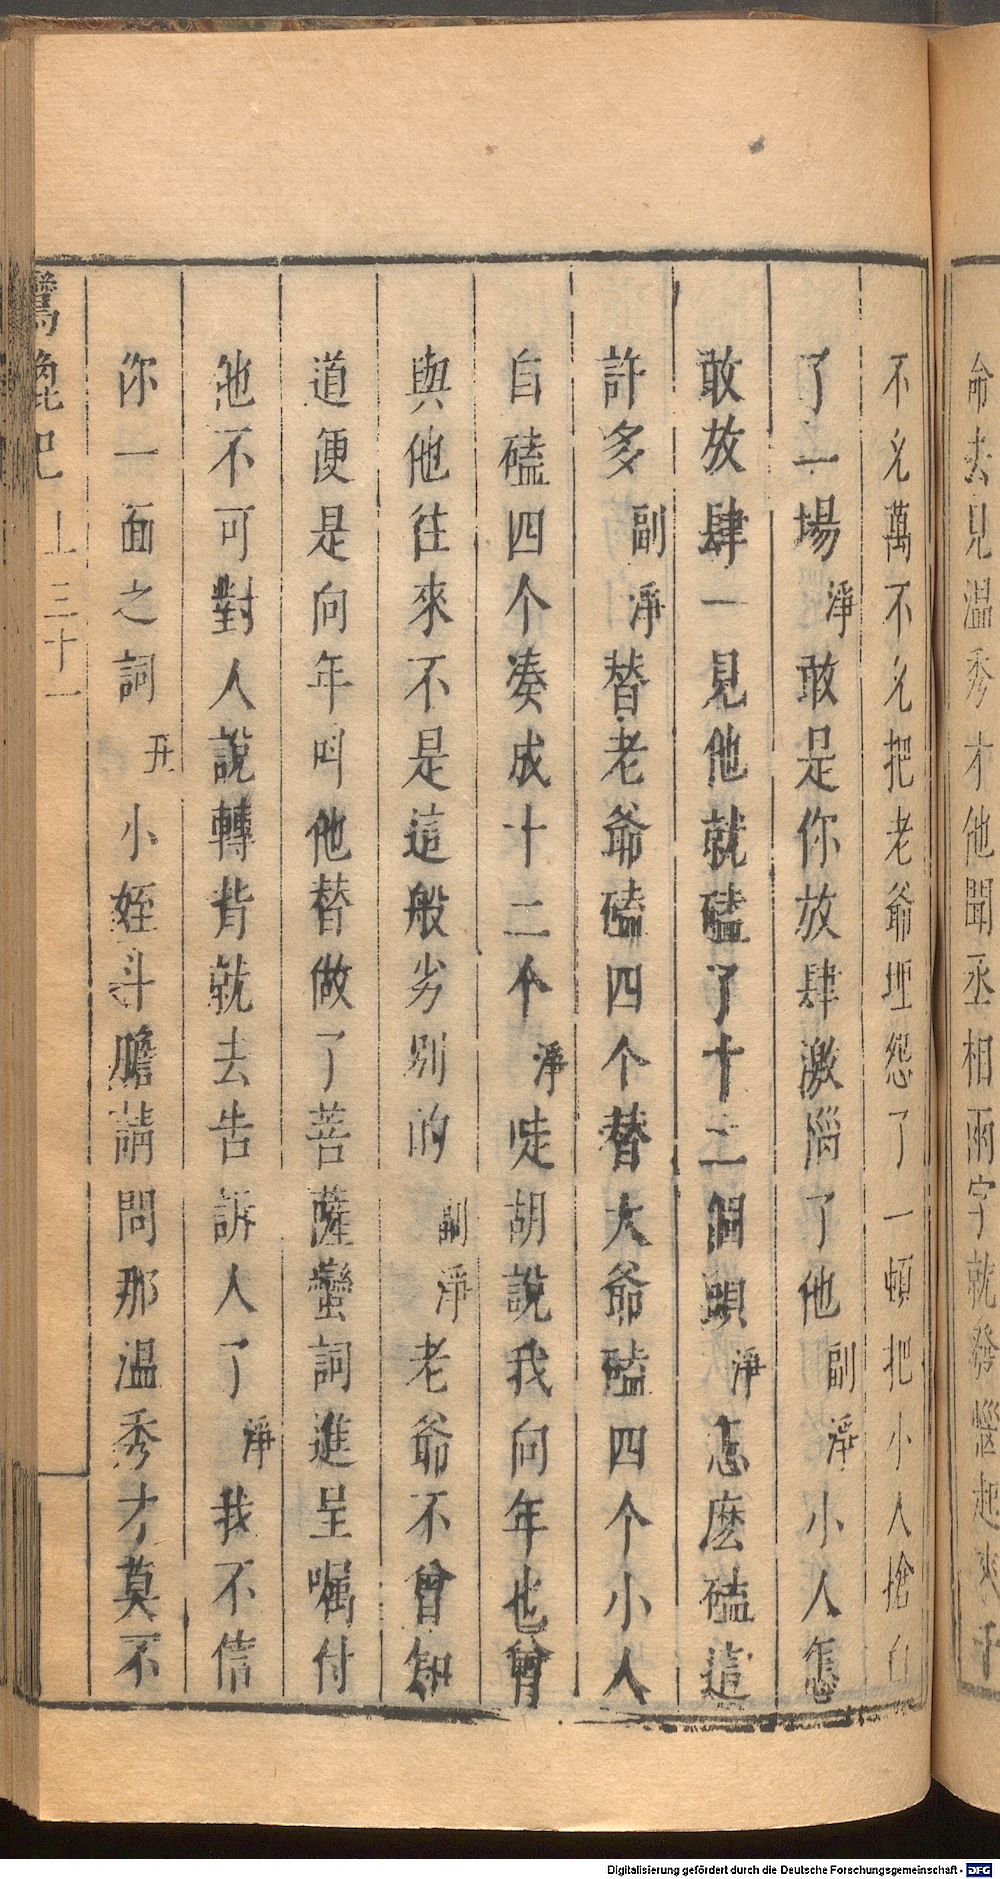 命去見温秀才他聞丞相兩字就發惱起來千
不允萬不允把老爺埋怨了一頓把小人搶白
了一場淨敢是你放肆激惱了他副淨小人怎
敢放肆一見他就磕了十二個頭淨怎麽磕這
許多副淨替老爺磕四个替大爺磕四个小人
自磕四个凑成十二个淨哇胡說我向年也曾
與他往來不是這般劣別的副淨老爺不曾知
道便是向年呌他替做了菩薩蠻詞進呈嘱付
他不可對人說轉背就去告訴人了淨我不信
你一面之詞丑小姪斗膽請問那温秀才莫不
鴛鴦記 上 三十一
Digitalisierung gefördert durch die Deutsche Forschungsgemeinschaft - DFG